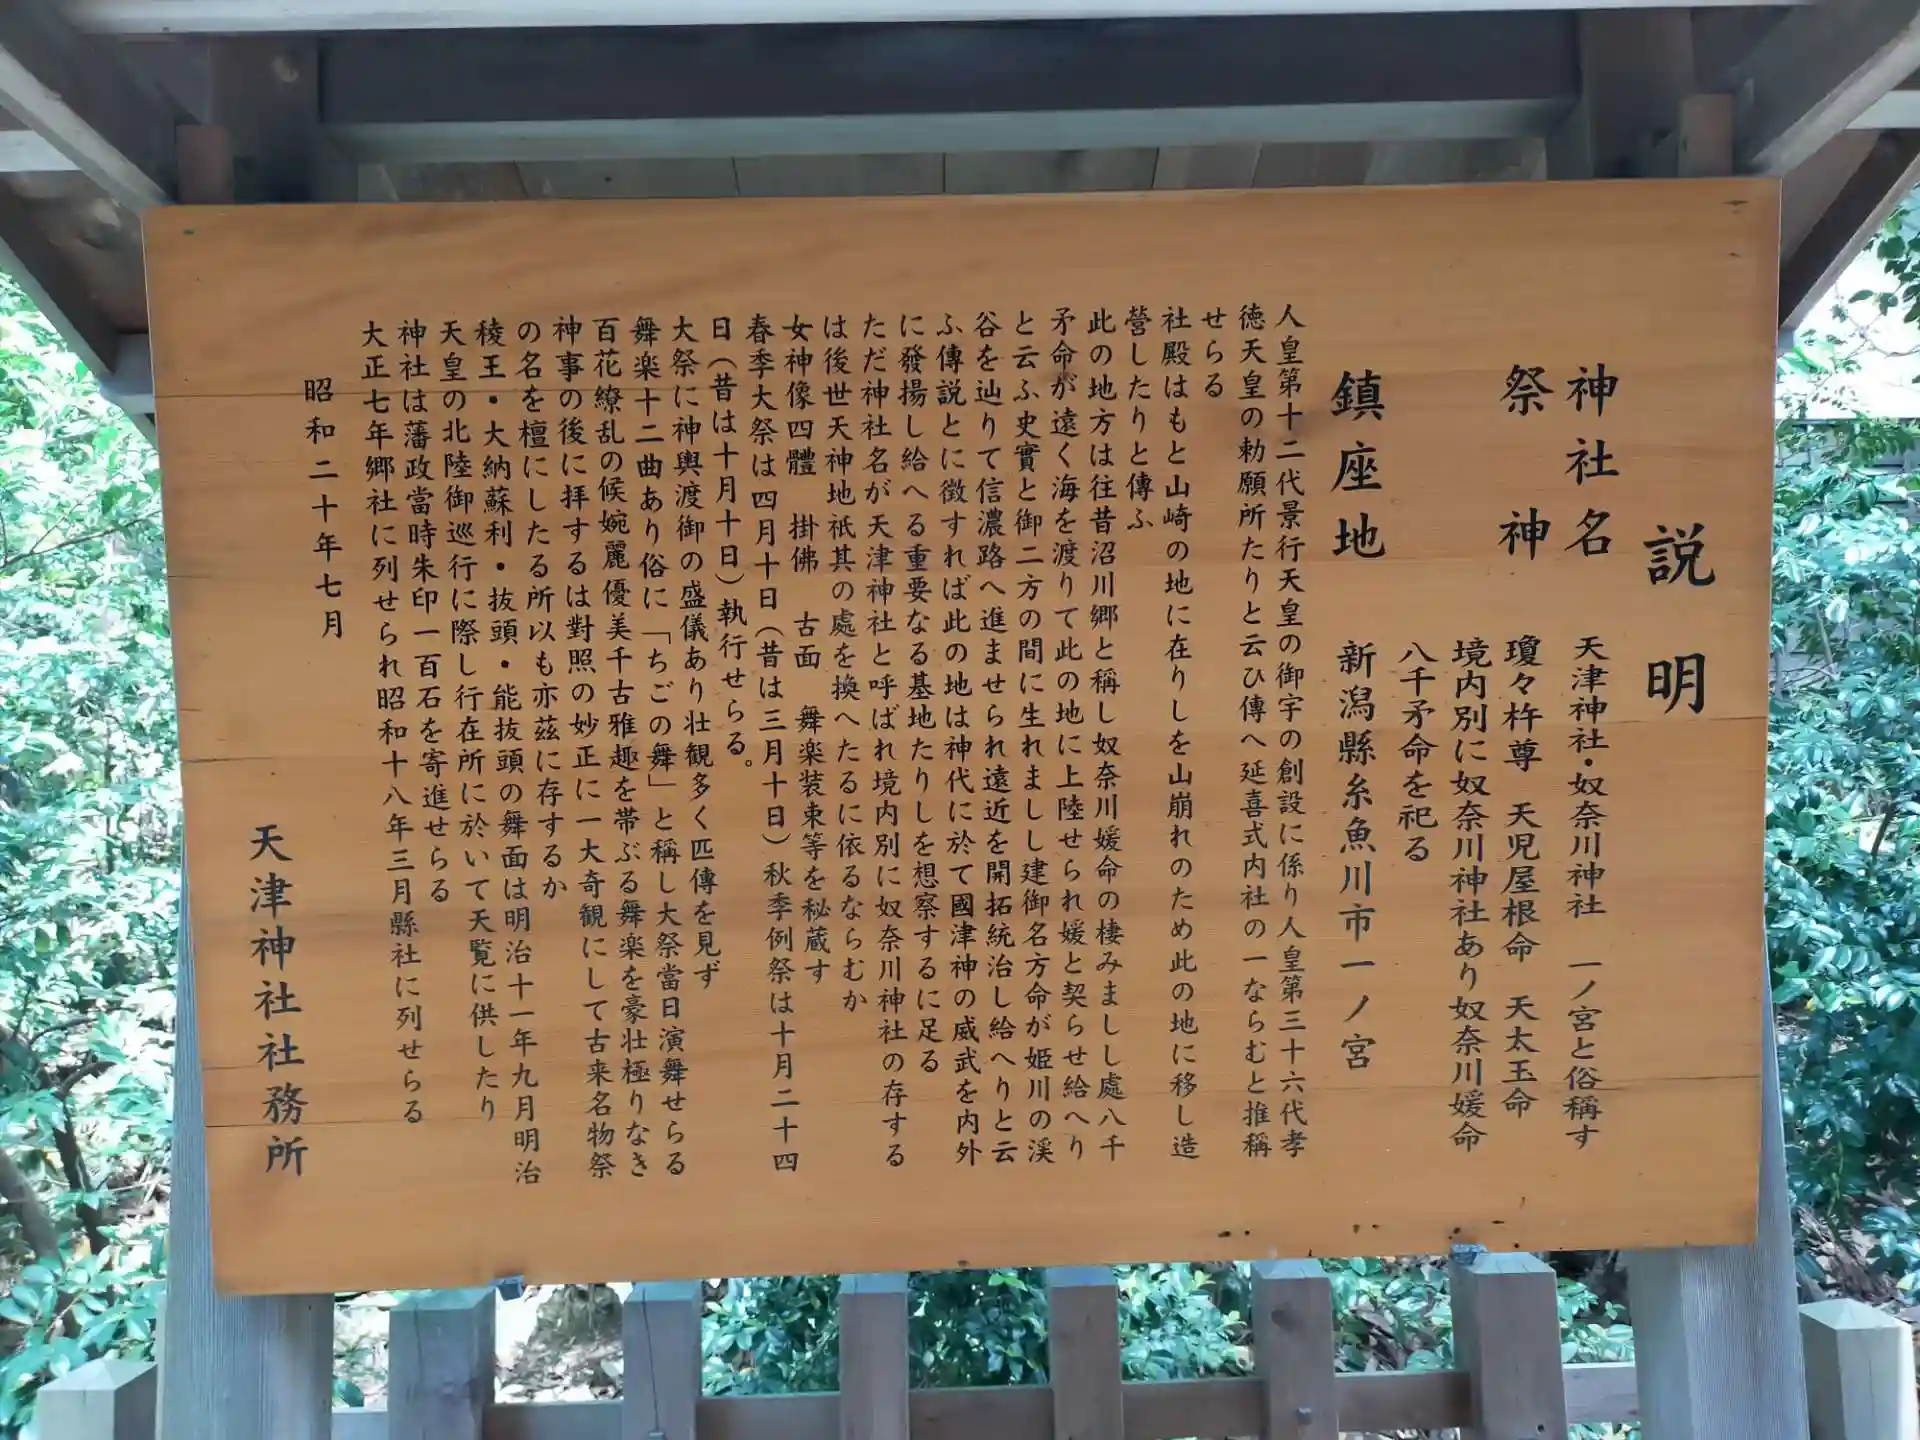 説明
神社名　天津神社・奴奈川神社　一ノ宮と俗稱す
祭神　瓊々杵尊　天児屋根命　天太玉命
境内別に奴奈川神社あり奴奈川媛命
八千矛命を祀る
鎮座地　新潟縣糸魚川市一ノ宮
人皇第十二代景行天皇の御宇の創設に係り人皇第三十六代孝
徳天皇の勅願所たりと云ひ傳へ延喜式内社の一ならむと推稱
せらる
社殿はもと山崎の地に在りしを山崩れのため此の地に移し造
営したりと傳ふ
此の地方は往昔沼川郷と稱し奴奈川媛命の棲みましし處八千
矛命が遠く海を渡りて此の地に上陸せられ媛と契らせ給へり
と云ふ史實と御二方の間に生れましし建御名方命が姫川の渓
谷を辿りて信濃路へ進ませられ遠近を開拓統治し給へりと云
ふ傳説とに徴すれば此の地は神代に於て國津神の威武を内外
に發揚し給へる重要なる基地たりしを想察するに足る
ただ神社名が天津神社と呼ばれ境内別に奴奈川神社の存する
は後世天神地祇其の處を換へたるに依るならむか
女神像四體　掛佛　古面　舞楽装束等を秘蔵す
春季大祭は四月十日（昔は三月十日）秋季例祭は十月二十四
日（昔は十月十日）執行せらる。
大祭に神輿渡御の盛儀あり壮観多く匹傳を見ず
舞楽十二曲あり俗に「ちごの舞」と稱し大祭當日演舞せらる
百花繚乱の候婉麗優美千古雅趣を帯ぶる舞楽を豪壮極りなき
神事の後に拝するは對照の妙正に一大奇観にして古来名物祭
の名を檀にしたる所以も亦茲に存するか
稜王・大納蘇利・抜頭・能抜頭の舞面は明治十一年九月明治
天皇の北陸御巡行に際し行在所に於いて天覧に供したり
神社は藩政當時朱印一百石を寄進せらる
大正七年郷社に列せられ昭和十八年三月縣社に列せらる
昭和二十年七月
天津神社社務所